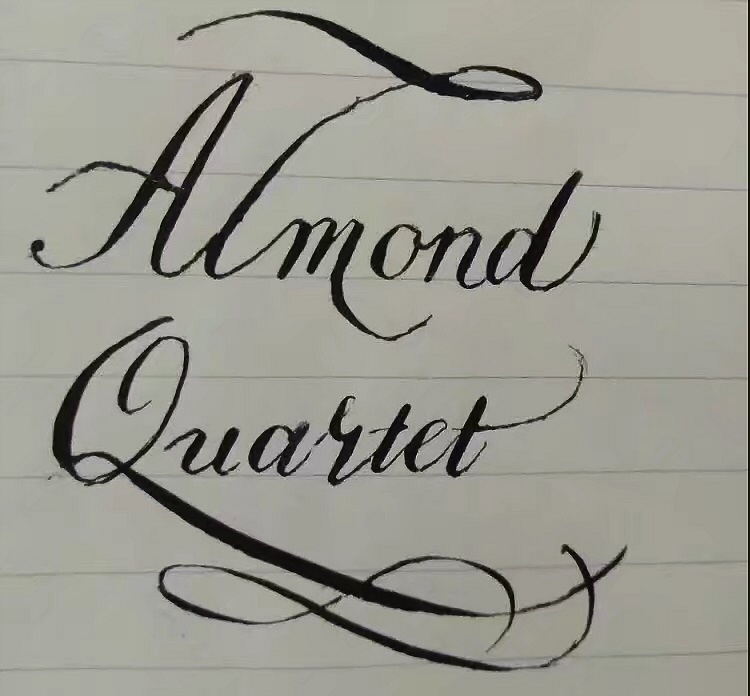 Almond
Quartet